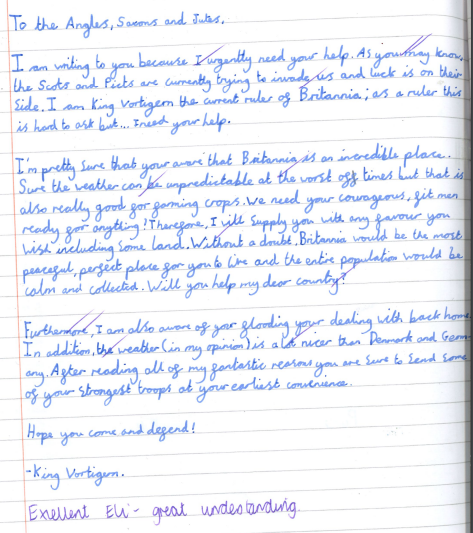 To the Angles, Saxons and Jutes,
I am writing to you because I urgently need your help. As you may know,
the Scots and Picts are currently trying to invade us and luck is on their
side. I am King Vortigern the current ruler of Britannia; as a ruler this
is hard to ask but... I need your help.
I'm pretty sure that your aware that Britannia is an incredible place.
Sure the weather can be unpredictable at the worst off times but that is
also really good for farming crops. We need your courageous, fit men
ready for anything! Therefore, I will supply you with any favour you
wish including some land. Without a doubt, Britannia would be the most
peaceful, perfect place for you to live and the entire population would be
calm and collected. Will you help my dear country?
Furthermore, I am also aware of your flooding your dealing with back home.
In addition, the weather (in my opinion) is a lot nicer than Denmark and Germ-
any. After reading all of my fantastic reasons you are sure to send some
of your strongest troops at your earliest convenience.
Hope you come and defend!
-King Vortigern.
Exellent Eli - great undestanding.